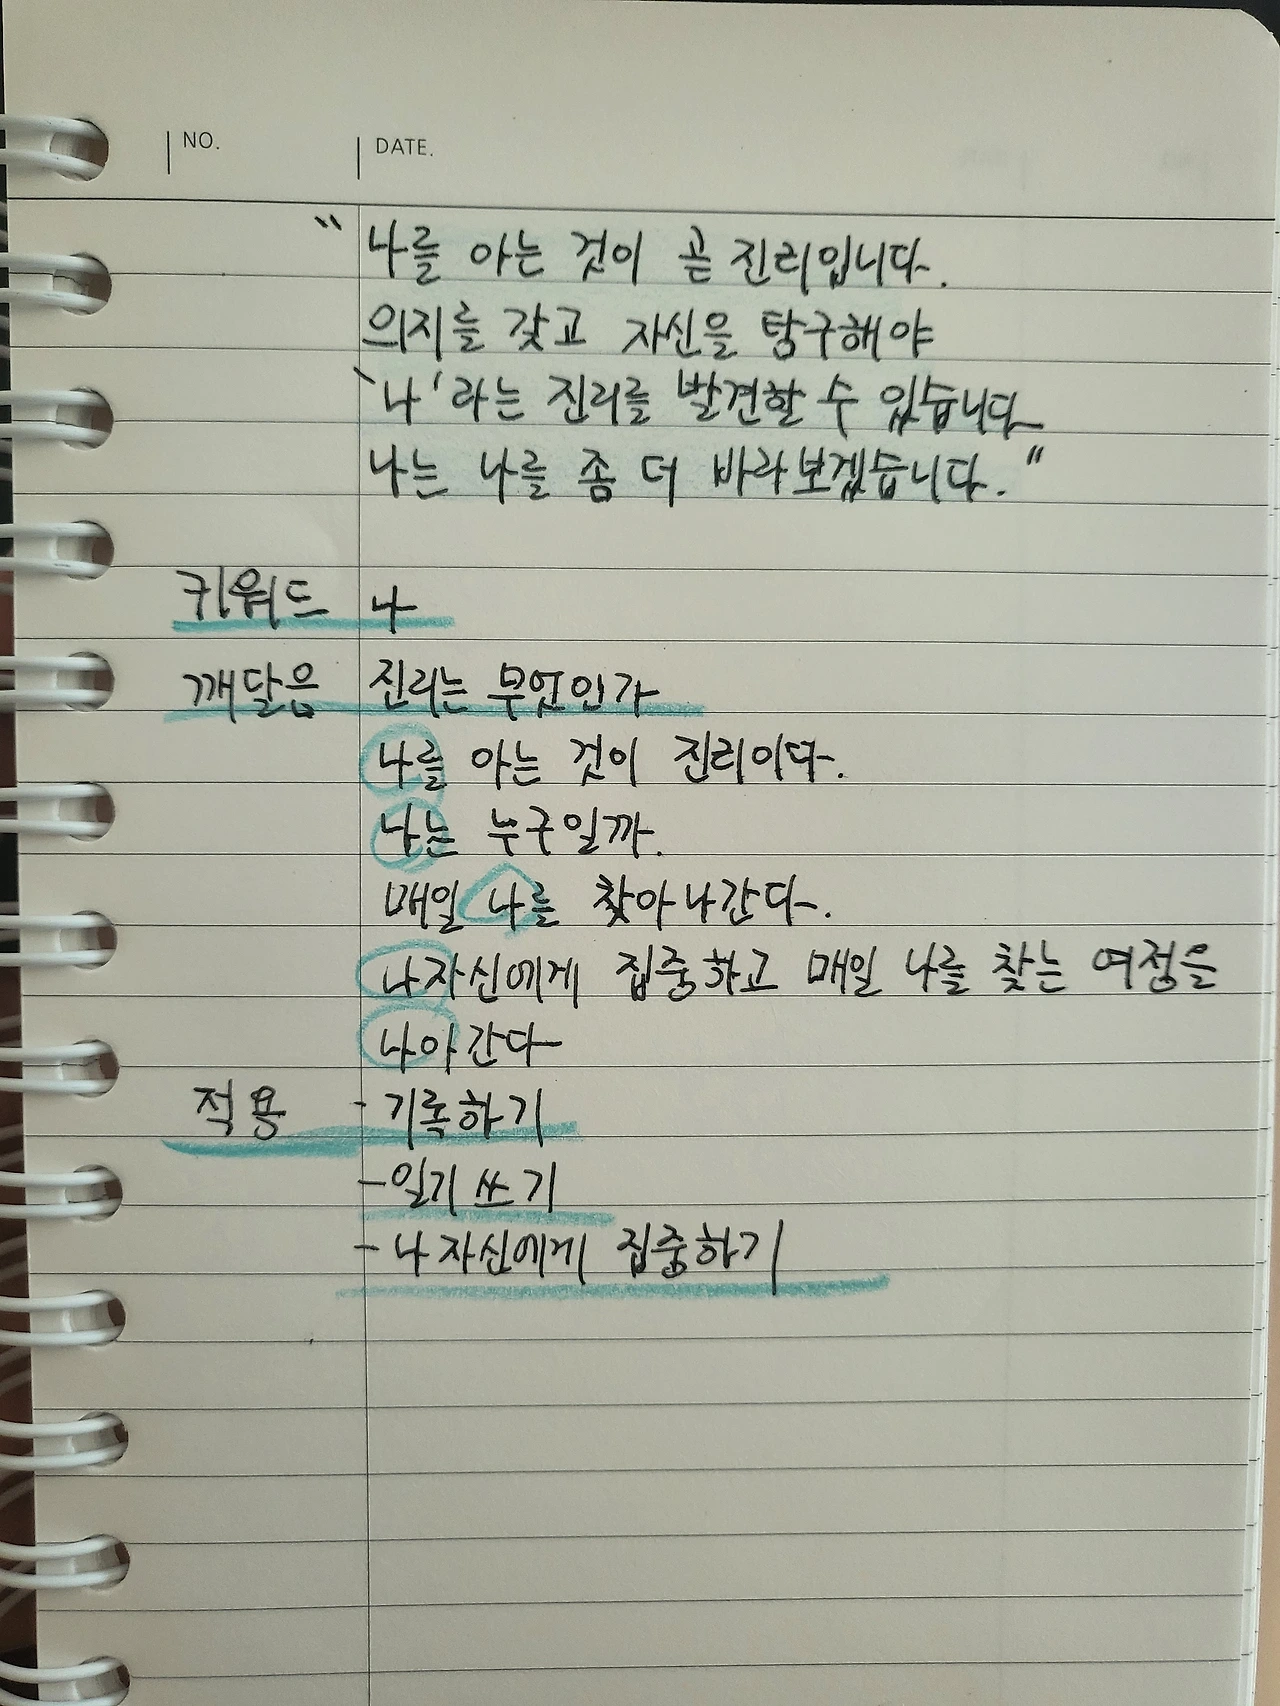 NO. DATE.
“나를 아는 것이 곧 진리입니다.
의지를 갖고 자신을 탐구해야
‘나’라는 진리를 발견할 수 있습니다
나는 나를 좀 더 바라보겠습니다.”
키워드 나
깨달음 진리는 무엇인가
나를 아는 것이 진리이다.
나는 누구일까.
매일 나를 찾아나간다.
나자신에게 집중하고 매일 나를 찾는 여정을
나아간다
적용 - 기록하기
- 일기 쓰기
- 나 자신에게 집중하기